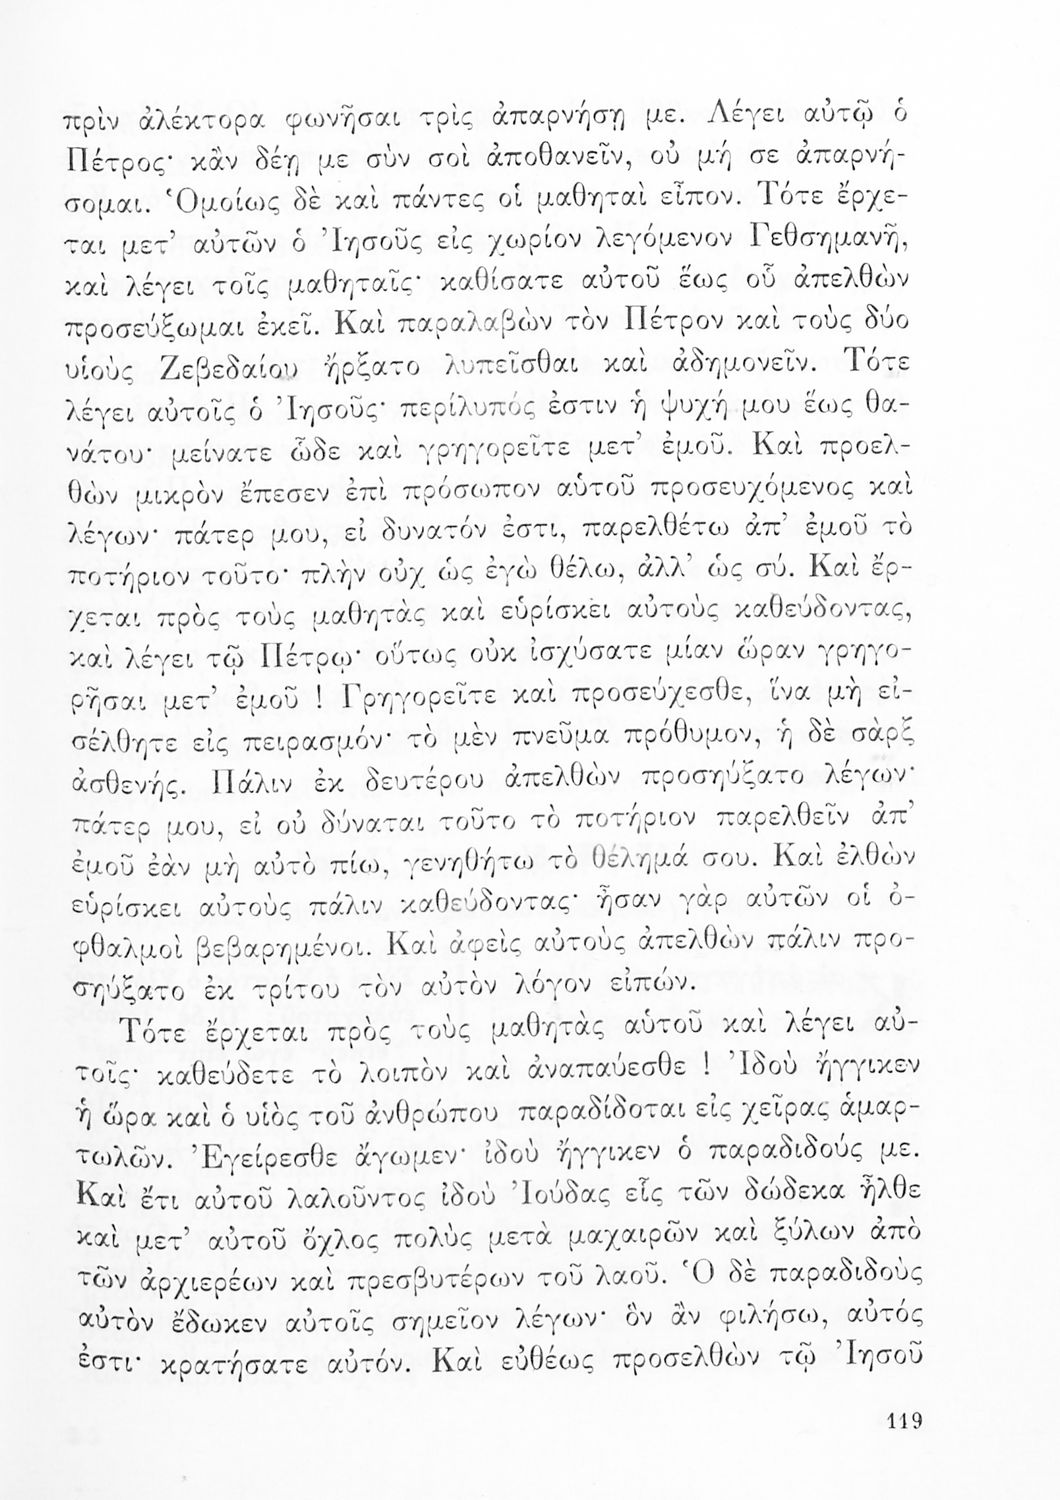 πρὶν ἀλέκτορα φωνῆσαι τρὶς ἀπαρνήσῃ με. Λέγει αὐτῷ ὁ
Πέτρος· κἂν δέῃ με σὺν σοὶ ἀποθανεῖν, οὐ μή σε ἀπαρνή-
σομαι. Ὁμοίως δὲ καὶ πάντες οἱ μαθηταὶ εἶπον. Τότε ἔρχε-
ται μετ’ αὐτῶν ὁ Ἰησοῦς εἰς χωρίον λεγόμενον Γεθσημανῆ,
καὶ λέγει τοῖς μαθηταῖς· καθίσατε αὐτοῦ ἕως οὗ ἀπελθὼν
προσεύξωμαι ἐκεῖ. Καὶ παραλαβὼν τὸν Πέτρον καὶ τοὺς δύο
υἱοὺς Ζεβεδαίου ἤρξατο λυπεῖσθαι καὶ ἀδημονεῖν. Τότε
λέγει αὐτοῖς ὁ Ἰησοῦς· περίλυπός ἐστιν ἡ ψυχή μου ἕως θα-
νάτου· μείνατε ὧδε καὶ γρηγορεῖτε μετ’ ἐμοῦ. Καὶ προελ-
θὼν μικρὸν ἔπεσεν ἐπὶ πρόσωπον αὑτοῦ προσευχόμενος καὶ
λέγων· πάτερ μου, εἰ δυνατόν ἐστι, παρελθέτω ἀπ’ ἐμοῦ τὸ
ποτήριον τοῦτο· πλὴν οὐχ ὡς ἐγὼ θέλω, ἀλλ’ ὡς σύ. Καὶ ἔρ-
χεται πρὸς τοὺς μαθητὰς καὶ εὑρίσκει αὐτοὺς καθεύδοντας,
καὶ λέγει τῷ Πέτρῳ· οὕτως οὐκ ἰσχύσατε μίαν ὥραν γρηγο-
ρῆσαι μετ’ ἐμοῦ ! Γρηγορεῖτε καὶ προσεύχεσθε, ἵνα μὴ εἰ-
σέλθητε εἰς πειρασμόν· τὸ μὲν πνεῦμα πρόθυμον, ἡ δὲ σὰρξ
ἀσθενής. Πάλιν ἐκ δευτέρου ἀπελθὼν προσηύξατο λέγων·
πάτερ μου, εἰ οὐ δύναται τοῦτο τὸ ποτήριον παρελθεῖν ἀπ’
ἐμοῦ ἐὰν μὴ αὐτὸ πίω, γενηθήτω τὸ θέλημά σου. Καὶ ἐλθὼν
εὑρίσκει αὐτοὺς πάλιν καθεύδοντας· ἦσαν γὰρ αὐτῶν οἱ ὀ-
φθαλμοὶ βεβαρημένοι. Καὶ ἀφεὶς αὐτοὺς ἀπελθὼν πάλιν προ-
σηύξατο ἐκ τρίτου τὸν αὐτὸν λόγον εἰπών.
Τότε ἔρχεται πρὸς τοὺς μαθητὰς αὑτοῦ καὶ λέγει αὐ-
τοῖς· καθεύδετε τὸ λοιπὸν καὶ ἀναπαύεσθε ! Ἰδοὺ ἤγγικεν
ἡ ὥρα καὶ ὁ υἱὸς τοῦ ἀνθρώπου παραδίδοται εἰς χεῖρας ἁμαρ-
τωλῶν. Ἐγείρεσθε ἄγωμεν· ἰδοὺ ἤγγικεν ὁ παραδιδούς με.
Καὶ ἔτι αὐτοῦ λαλοῦντος ἰδοὺ Ἰούδας εἷς τῶν δώδεκα ἦλθε
καὶ μετ’ αὐτοῦ ὄχλος πολὺς μετὰ μαχαιρῶν καὶ ξύλων ἀπὸ
τῶν ἀρχιερέων καὶ πρεσβυτέρων τοῦ λαοῦ. Ὁ δὲ παραδιδοὺς
αὐτὸν ἔδωκεν αὐτοῖς σημεῖον λέγων· ὃν ἂν φιλήσω, αὐτός
ἐστι· κρατήσατε αὐτόν. Καὶ εὐθέως προσελθὼν τῷ Ἰησοῦ
119